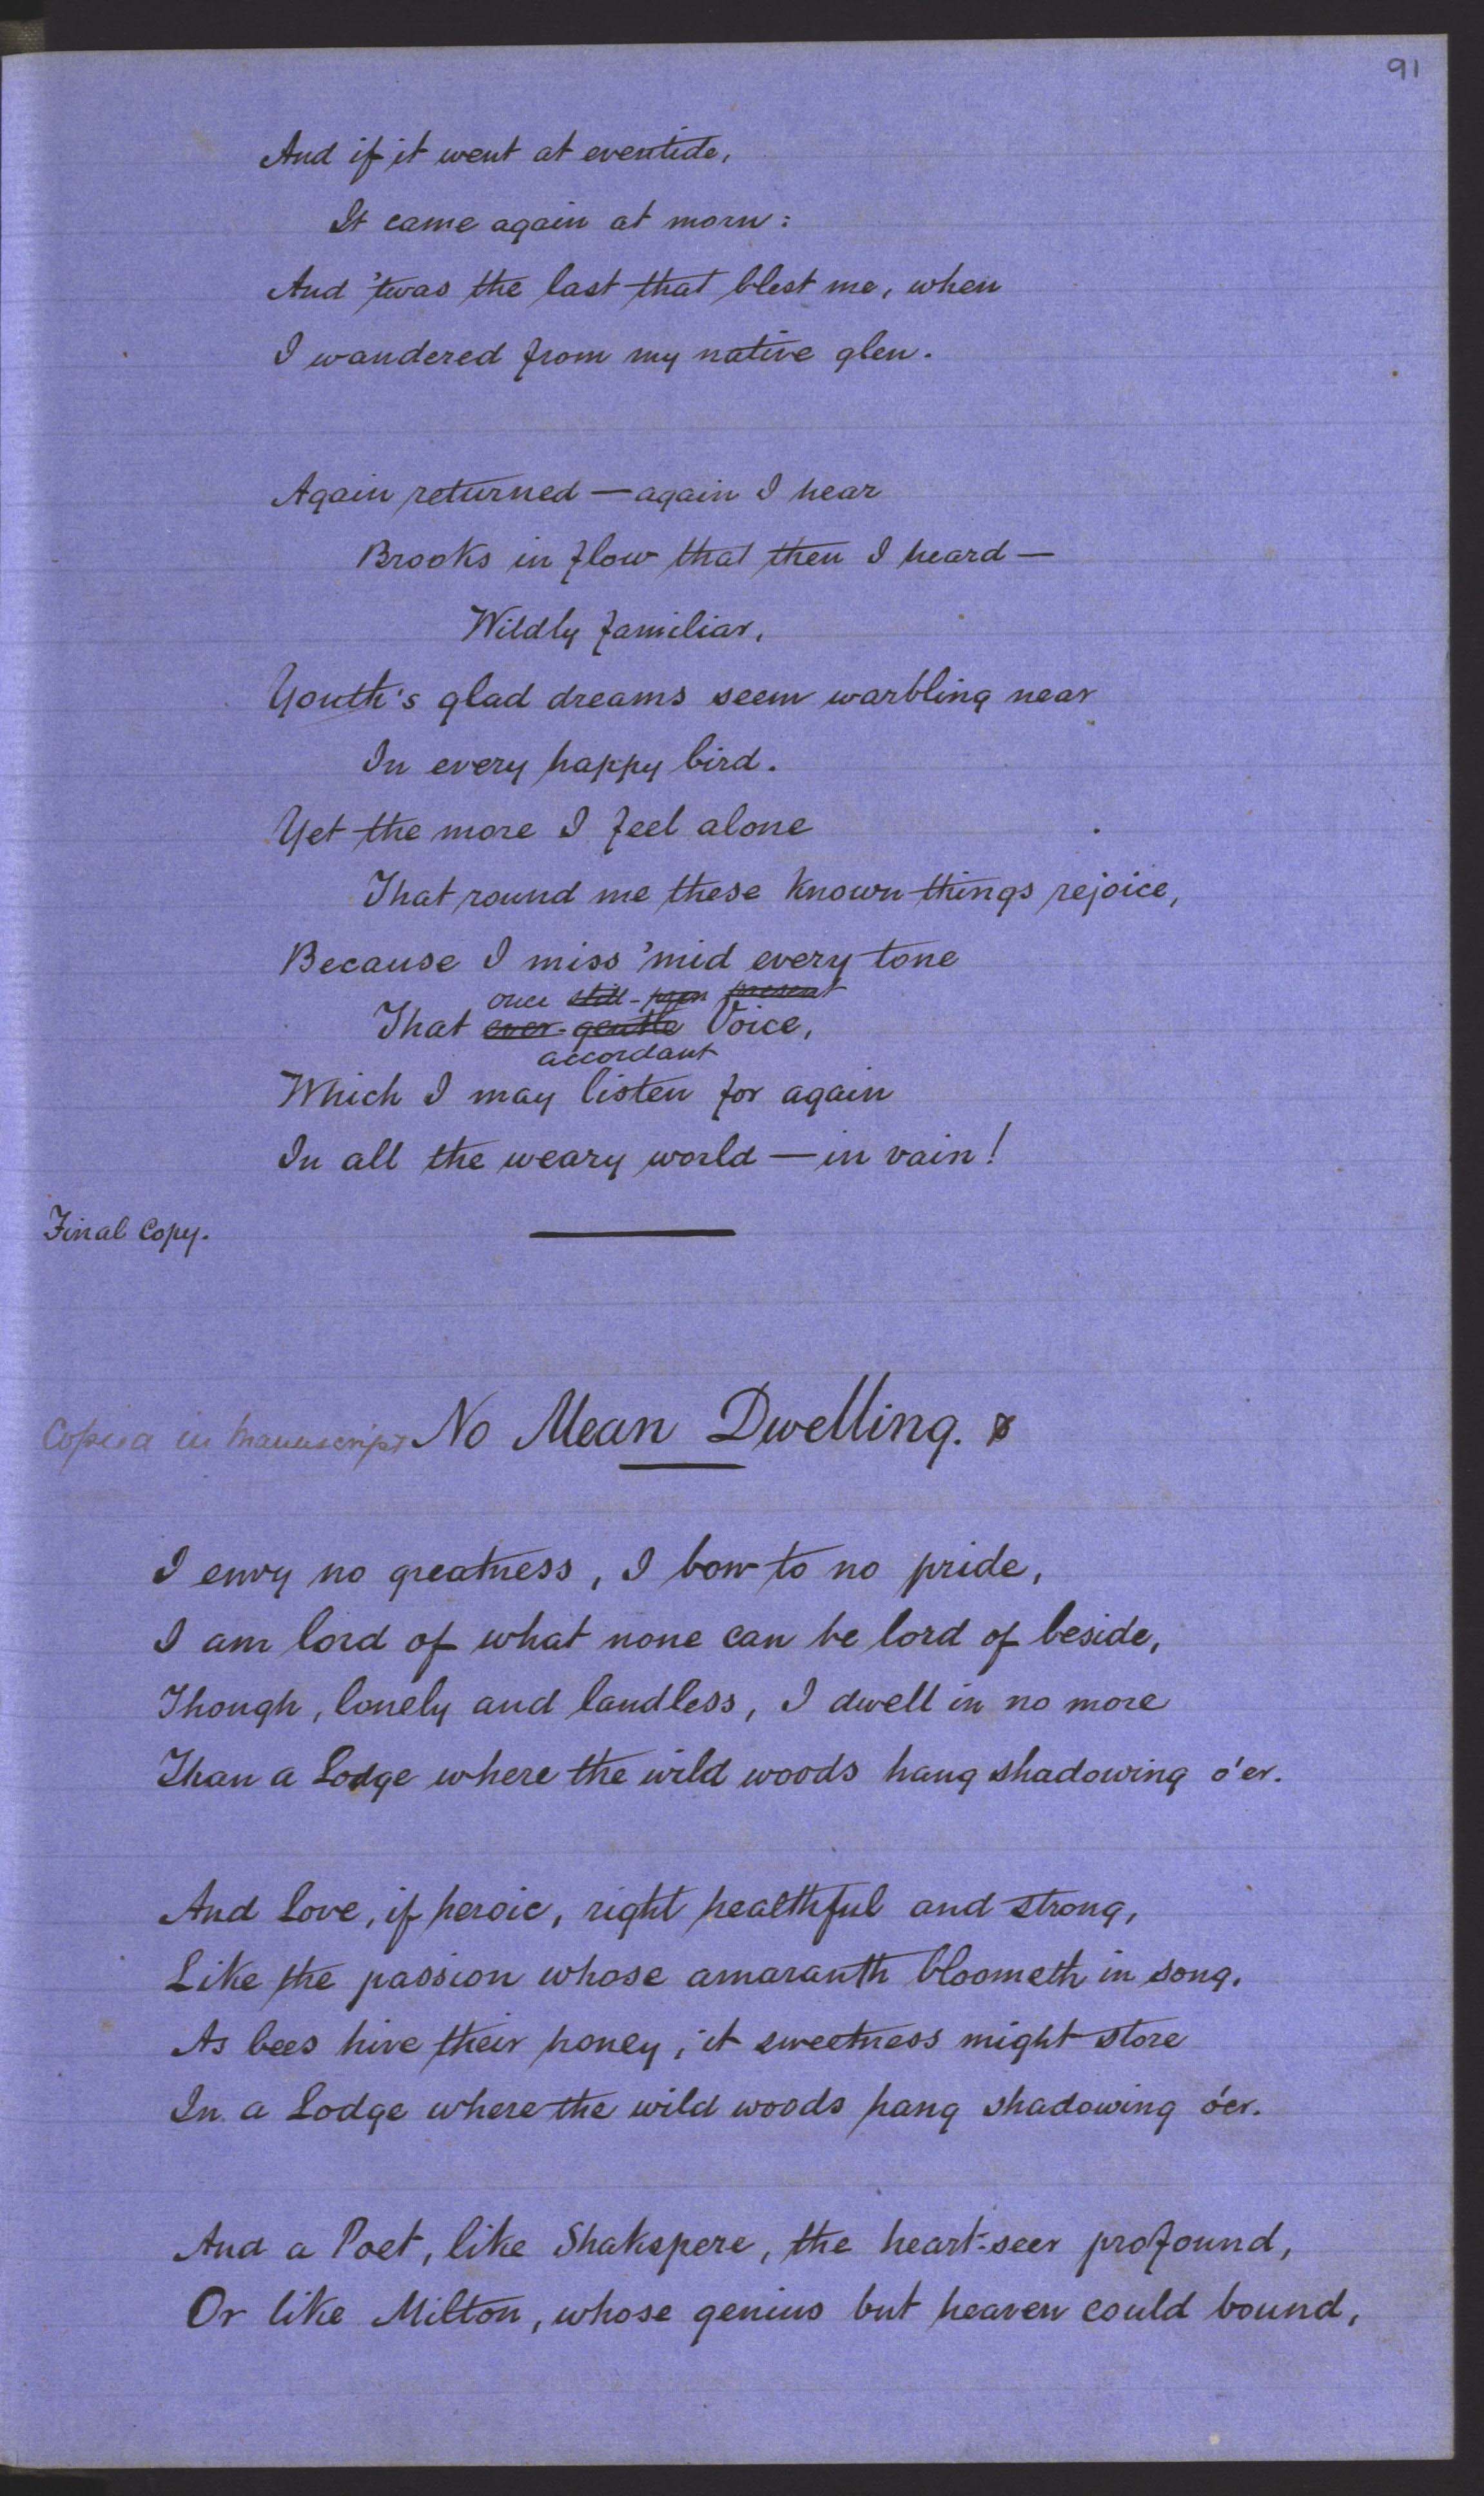 91
And if it went at eventide,
It came again at morn:
And 'twas the last that blest me, when
I wandered from my native glen.
Again returned — again I hear
Brooks in flow that then I heard —
Wildly familiar,
Youth's glad dreams seem warbling near
In every happy bird.
Yet the more I feel alone
That round me these known things rejoice,
Because I miss 'mid every tone
once still- present
That ever-gentle Voice,
accordant
Which I may listen for again
In all the weary world — in vain!
Final Copy.
Copied in Manuscript No Mean Dwelling.
I envy no greatness, I bow to no pride,
I am lord of what none can be lord of beside,
Though, lonely and landless, I dwell in no more
Than a Lodge where the wild woods hang shadowing o'er.
And Love, if heroic, right healthful and strong,
Like the passion whose amaranth bloometh in song,
As bees hive their honey, it sweetness might store
In a Lodge where the wild woods hang shadowing o'er.
And a Poet, like Shakspere, the heart-seer profound,
Or like Milton, whose genius but heaven could bound,